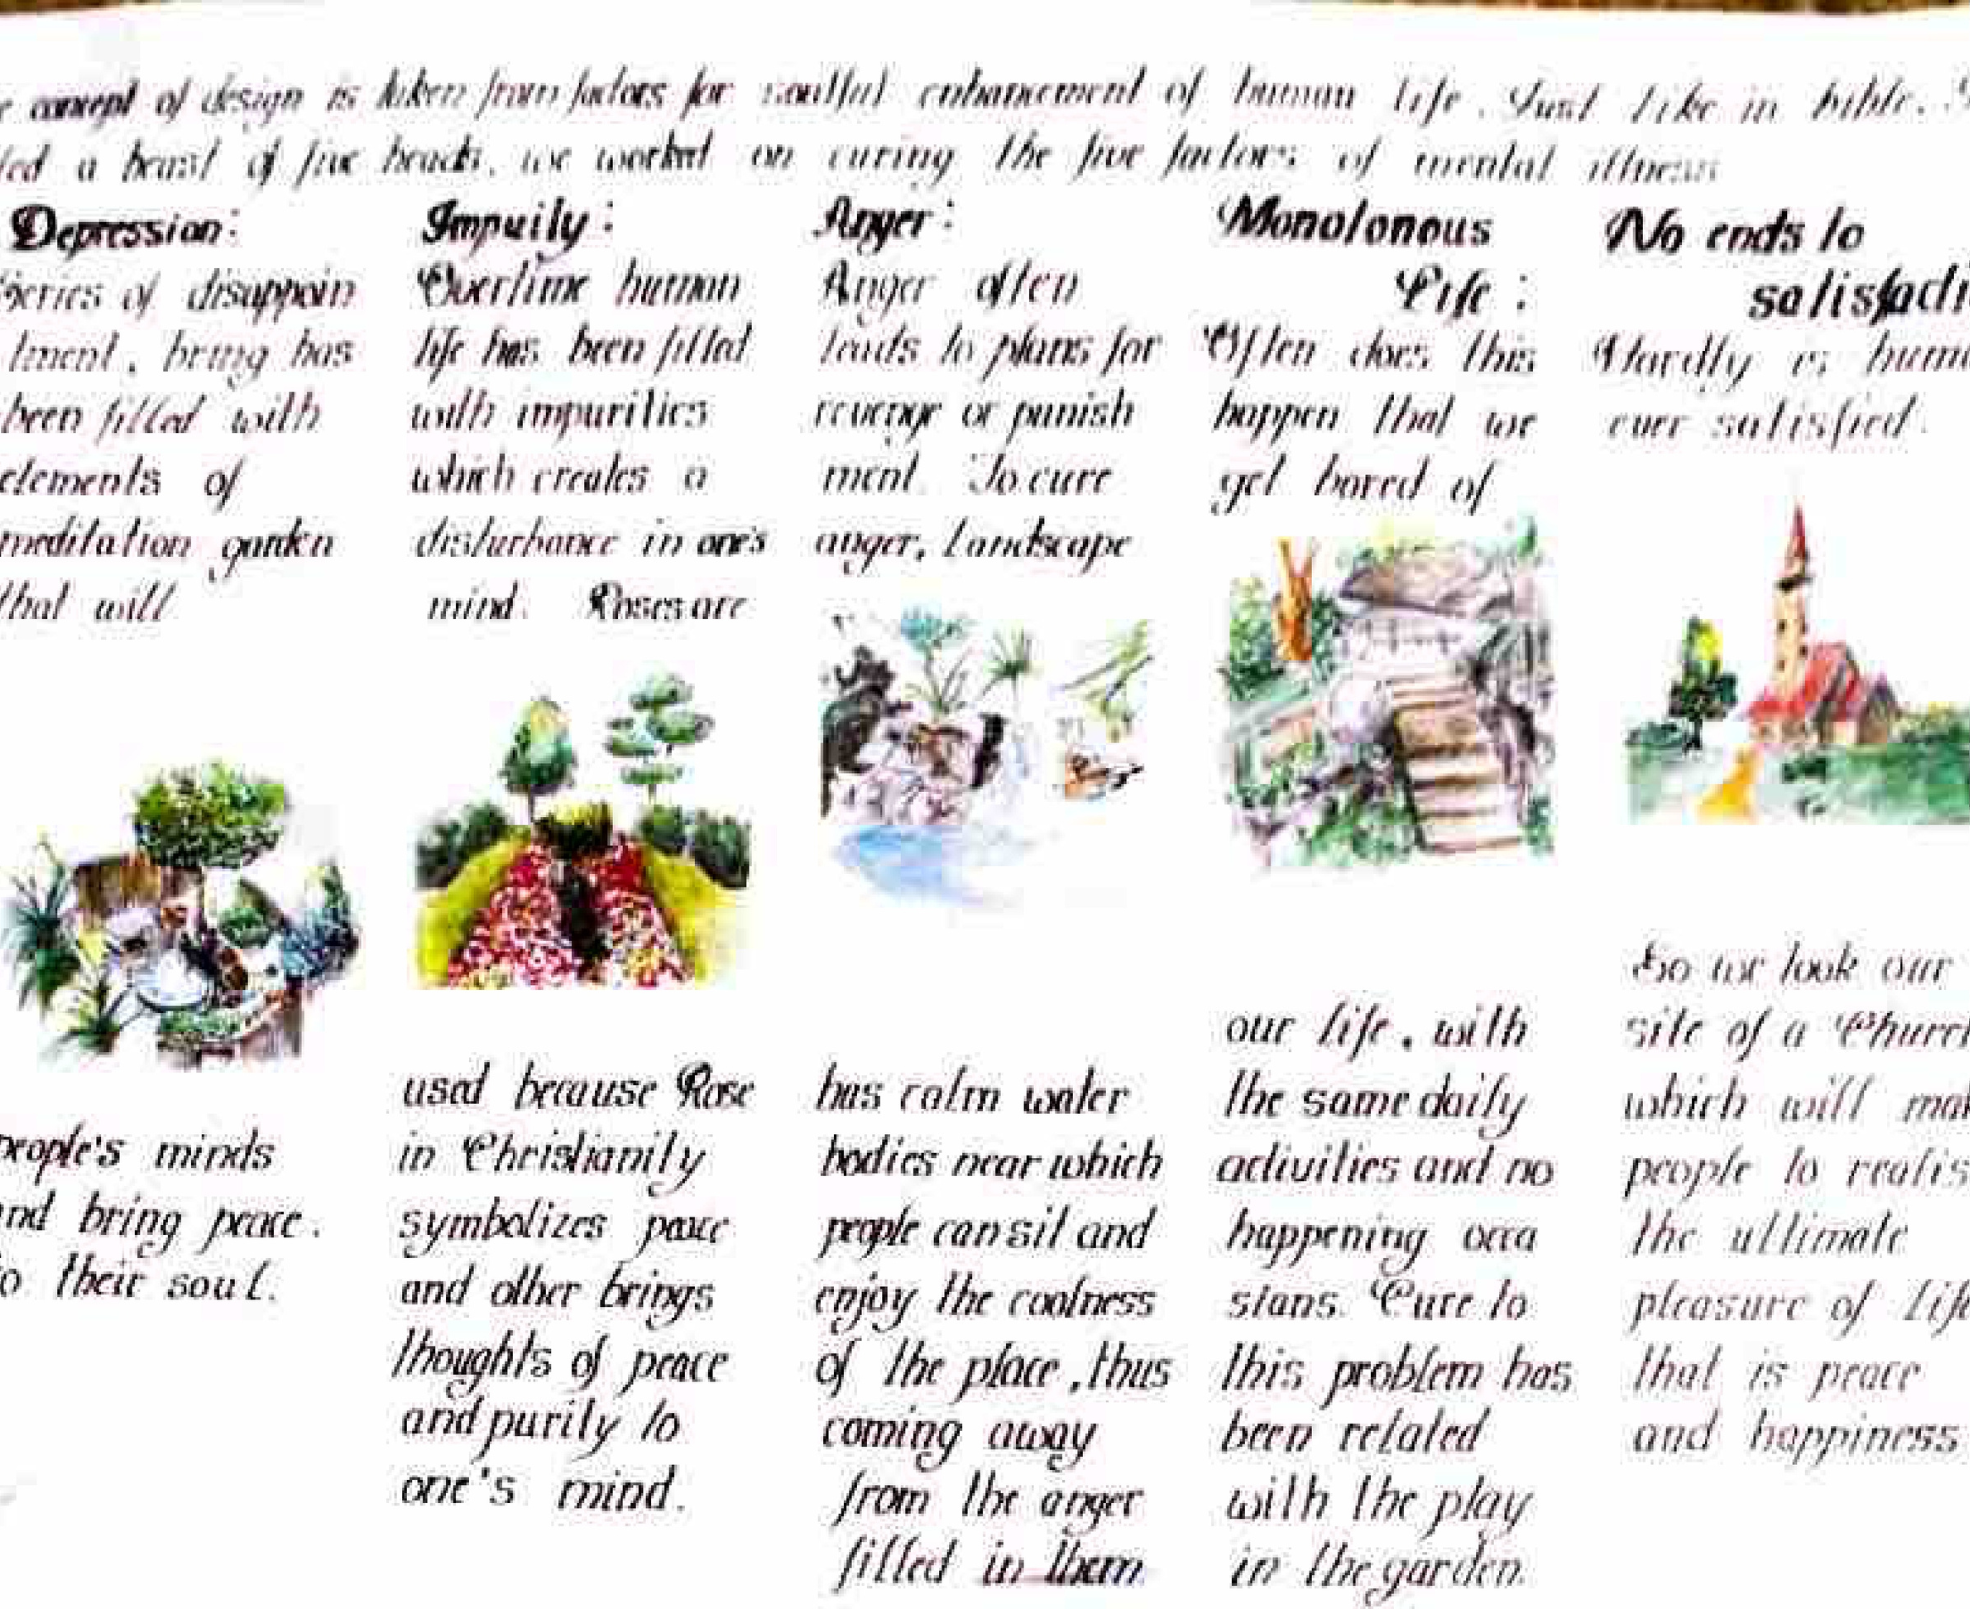 concept of design is taken from factors for soulful enhancement of human life. Just like in bible.
a beast of five heads, we worked on curing the five factors of mental illness
Depression:
Series of disappoin
tment, bring has
been filled with
elements of
meditation garden
that will
people's minds
and bring peace.
to their soul.
Impuity:
Overtime human
life has been filled
with impurities
which creates a
disturbance in one's
mind. Roses are
used because Rose
in Christianity
symbolizes peace
and other brings
thoughts of peace
and purity to
one's mind.
Anger:
Anger often
leads to plans for
revenge or punish
ment. To cure
anger, landscape
has calm water
bodies near which
people can sit and
enjoy the coolness
of the place, thus
coming away
from the anger
filled in them
Monotonous
Life:
Often does this
happen that we
get bored of
our life, with
the same daily
activities and no
happening occa
sians. Cure to
this problem has
been related
with the play
in the garden.
No ends to
satisfacti
Hardly is huma
ever satisfied.
So we look our
site of a Church
which will mak
people to realis
the ultimate
pleasure of life
that is peace
and happiness